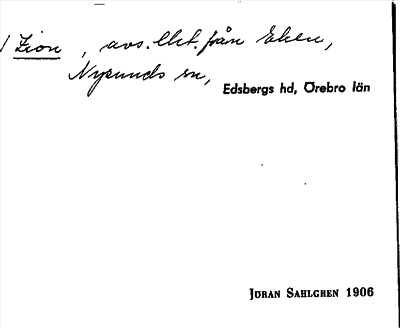 Zion, avs. lht. från Eken,
Nysunds sn,
Edsbergs hd, Örebro län
JÖRAN SAHLGREN 1906